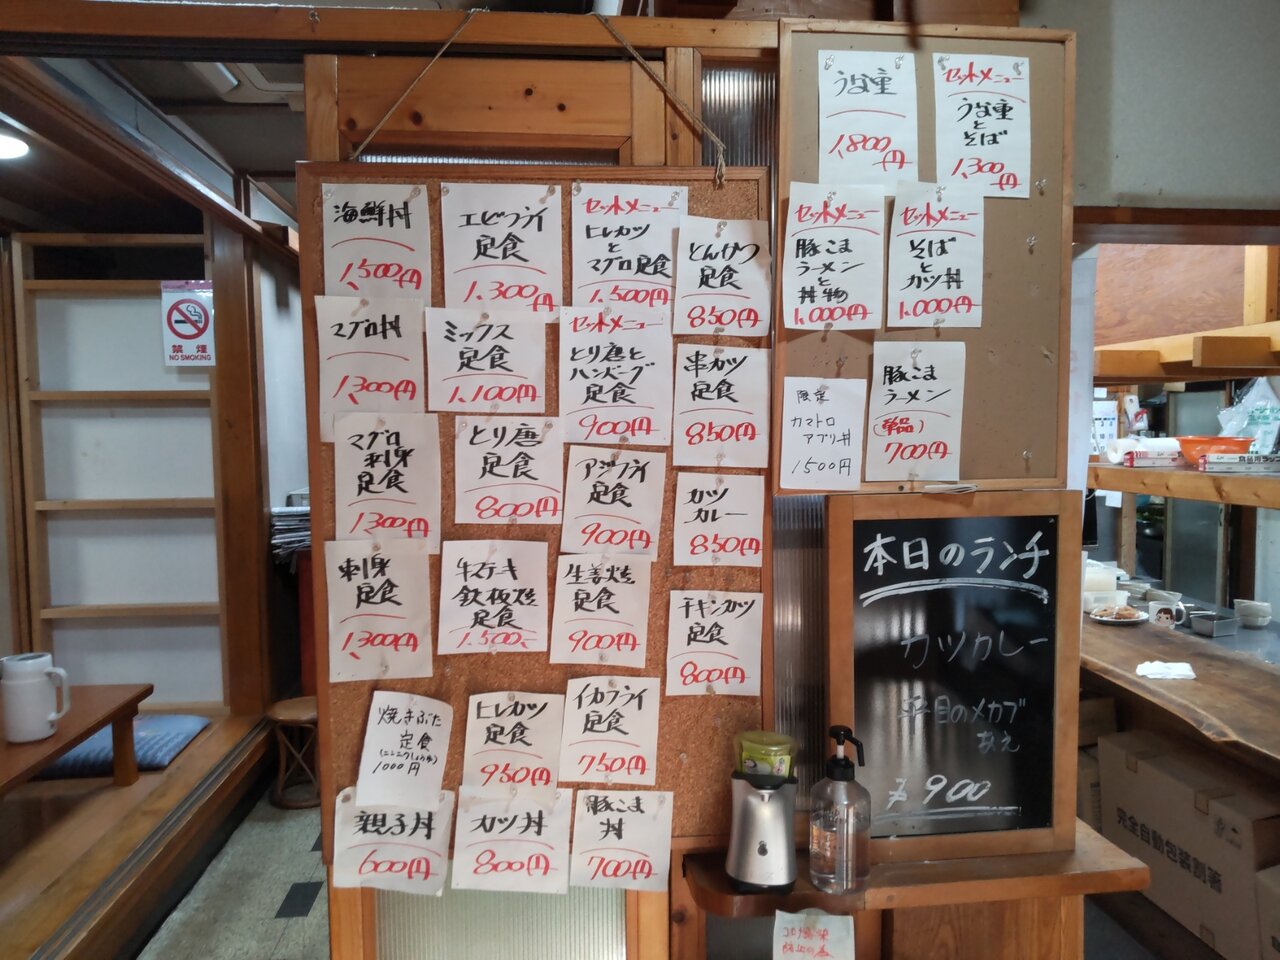 海鮮丼
1,500円
エビフライ
定食
1,300円
セットメニュー
ヒレカツ
と
マグロ定食
1,500円
とんかつ
定食
850円
マグロ丼
1,300円
ミックス
定食
1,100円
セットメニュー
とり唐と
ハンバーグ
定食
900円
串カツ
定食
850円
マグロ
刺身
定食
1300円
とり唐
定食
800円
アジフライ
定食
900円
カツ
カレー
850円
刺身
定食
1,300円
牛ステーキ
鉄板焼
定食
1,500
生姜焼
定食
900円
チキンカツ
定食
800円
焼きぶた
定食
1000円
ヒレカツ
定食
950円
イカフライ
定食
750円
親子丼
600円
カツ丼
800円
豚こま
丼
700円
うな重
1,800円
セットメニュー
うな重
と
そば
1,300円
セットメニュー
豚こま
ラーメン
と
丼物
1,000円
セットメニュー
そば
と
カツ丼
1,000円
限定
カマトロ
アブリ丼
1500円
豚こま
ラーメン
(単品)
700円
本日のランチ
カツカレー
平目のメカブ
あえ
¥900
禁煙
NO SMOKING
完全自動包装割箸